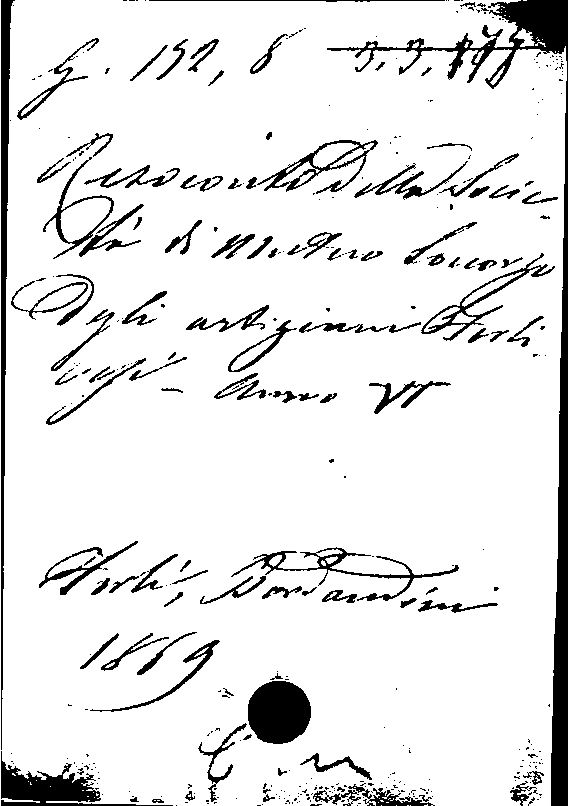 G. 152, 8 3. 3. 177
Resoconto della Socie-
tà di Mutuo Soccorso
degli artigiani Forli-
vesi - Anno VI
Forlì, Bordandini
1869